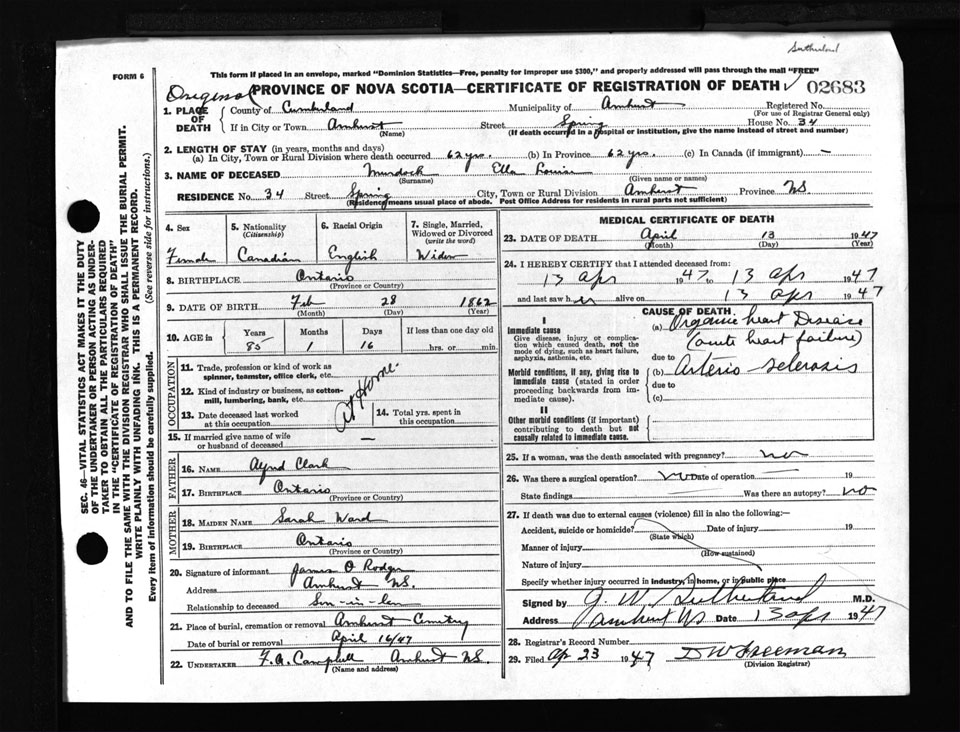 Sutherland
FORM 6
This form if placed in an envelope, marked "Dominion Statistics—Free, penalty for improper use $300," and properly addressed will pass through the mail "FREE"
Original
PROVINCE OF NOVA SCOTIA—CERTIFICATE OF REGISTRATION OF DEATH ✓ 02683
1. PLACE OF DEATH { County of Cumberland Municipality of Amherst Registered No.
(For use of Registrar General only)
If in City or Town Amherst Street Spring House No. 34
(Name) (If death occurred in a hospital or institution, give the name instead of street and number)
2. LENGTH OF STAY (in years, months and days)
(a) In City, Town or Rural Division where death occurred 62 yrs. (b) In Province 62 yrs. (c) In Canada (if immigrant) —
3. NAME OF DECEASED Murdock Ella Louisa
(Surname) (Given name or names)
RESIDENCE No. 34 Street Spring City, Town or Rural Division Amherst Province NS.
(Residence means usual place of abode. Post Office Address for residents in rural parts not sufficient)
4. Sex 5. Nationality (Citizenship) 6. Racial Origin 7. Single, Married, Widowed or Divorced (write the word)
Female Canadian English Widow
8. BIRTHPLACE Ontario
(Province or Country)
9. DATE OF BIRTH Feb 28 1862
(Month) (Day) (Year)
10. AGE in { Years Months Days If less than one day old
85 1 16 hrs. or min.
OCCUPATION
11. Trade, profession or kind of work as spinner, teamster, office clerk, etc.
12. Kind of industry or business, as cotton-mill, lumbering, bank, etc.
At Home
13. Date deceased last worked at this occupation
14. Total yrs. spent in this occupation
15. If married give name of wife or husband of deceased —
FATHER
16. NAME Clark
17. BIRTHPLACE Ontario
(Province or Country)
MOTHER
18. MAIDEN NAME Sarah Ward
19. BIRTHPLACE Ontario
(Province or Country)
20. Signature of informant James O Rodger
Address Amherst NS.
Relationship to deceased Son-in-law
21. Place of burial, cremation or removal Amherst Cemetry
Date of burial or removal April 16/47
22. UNDERTAKER F. A. Campbell Amherst NS.
(Name and address)
MEDICAL CERTIFICATE OF DEATH
23. DATE OF DEATH April 13 1947
(Month) (Day) (Year)
24. I HEREBY CERTIFY that I attended deceased from:
13 Apr 1947 to 13 Apr 1947
and last saw her alive on 13 Apr 1947
CAUSE OF DEATH
I
Immediate cause
Give disease, injury or complication which caused death, not the mode of dying, such as heart failure, asphyxia, asthenia, etc.
(a) Organic heart Disease
(acute heart failure)
due to
Morbid conditions, if any, giving rise to immediate cause (stated in order proceeding backwards from immediate cause).
(b) Arterio-sclerosis
due to
(c)
II
Other morbid conditions (if important) contributing to death but not causally related to immediate cause.
25. If a woman, was the death associated with pregnancy? no
26. Was there a surgical operation? no Date of operation 19
State findings Was there an autopsy? no
27. If death was due to external causes (violence) fill in also the following:—
Accident, suicide or homicide? Date of injury 19
(State which)
Manner of injury
(How sustained)
Nature of injury
Specify whether injury occurred in industry, in home, or in public place
Signed by J. W. Sutherland M.D.
Address Amherst NS Date 13 apr 1947
28. Registrar's Record Number
29. Filed Ap 23 1947 D W Freeman
(Division Registrar)
SEC. 46—VITAL STATISTICS ACT MAKES IT THE DUTY
OF THE UNDERTAKER OR PERSON ACTING AS UNDER-
TAKER TO OBTAIN ALL THE PARTICULARS REQUIRED
IN THE "CERTIFICATE OF REGISTRATION OF DEATH"
AND TO FILE THE SAME WITH THE DIVISION REGISTRAR WHO SHALL ISSUE THE BURIAL PERMIT.
WRITE PLAINLY WITH UNFADING INK. THIS IS A PERMANENT RECORD.
Every item of information should be carefully supplied. (See reverse side for instructions.)